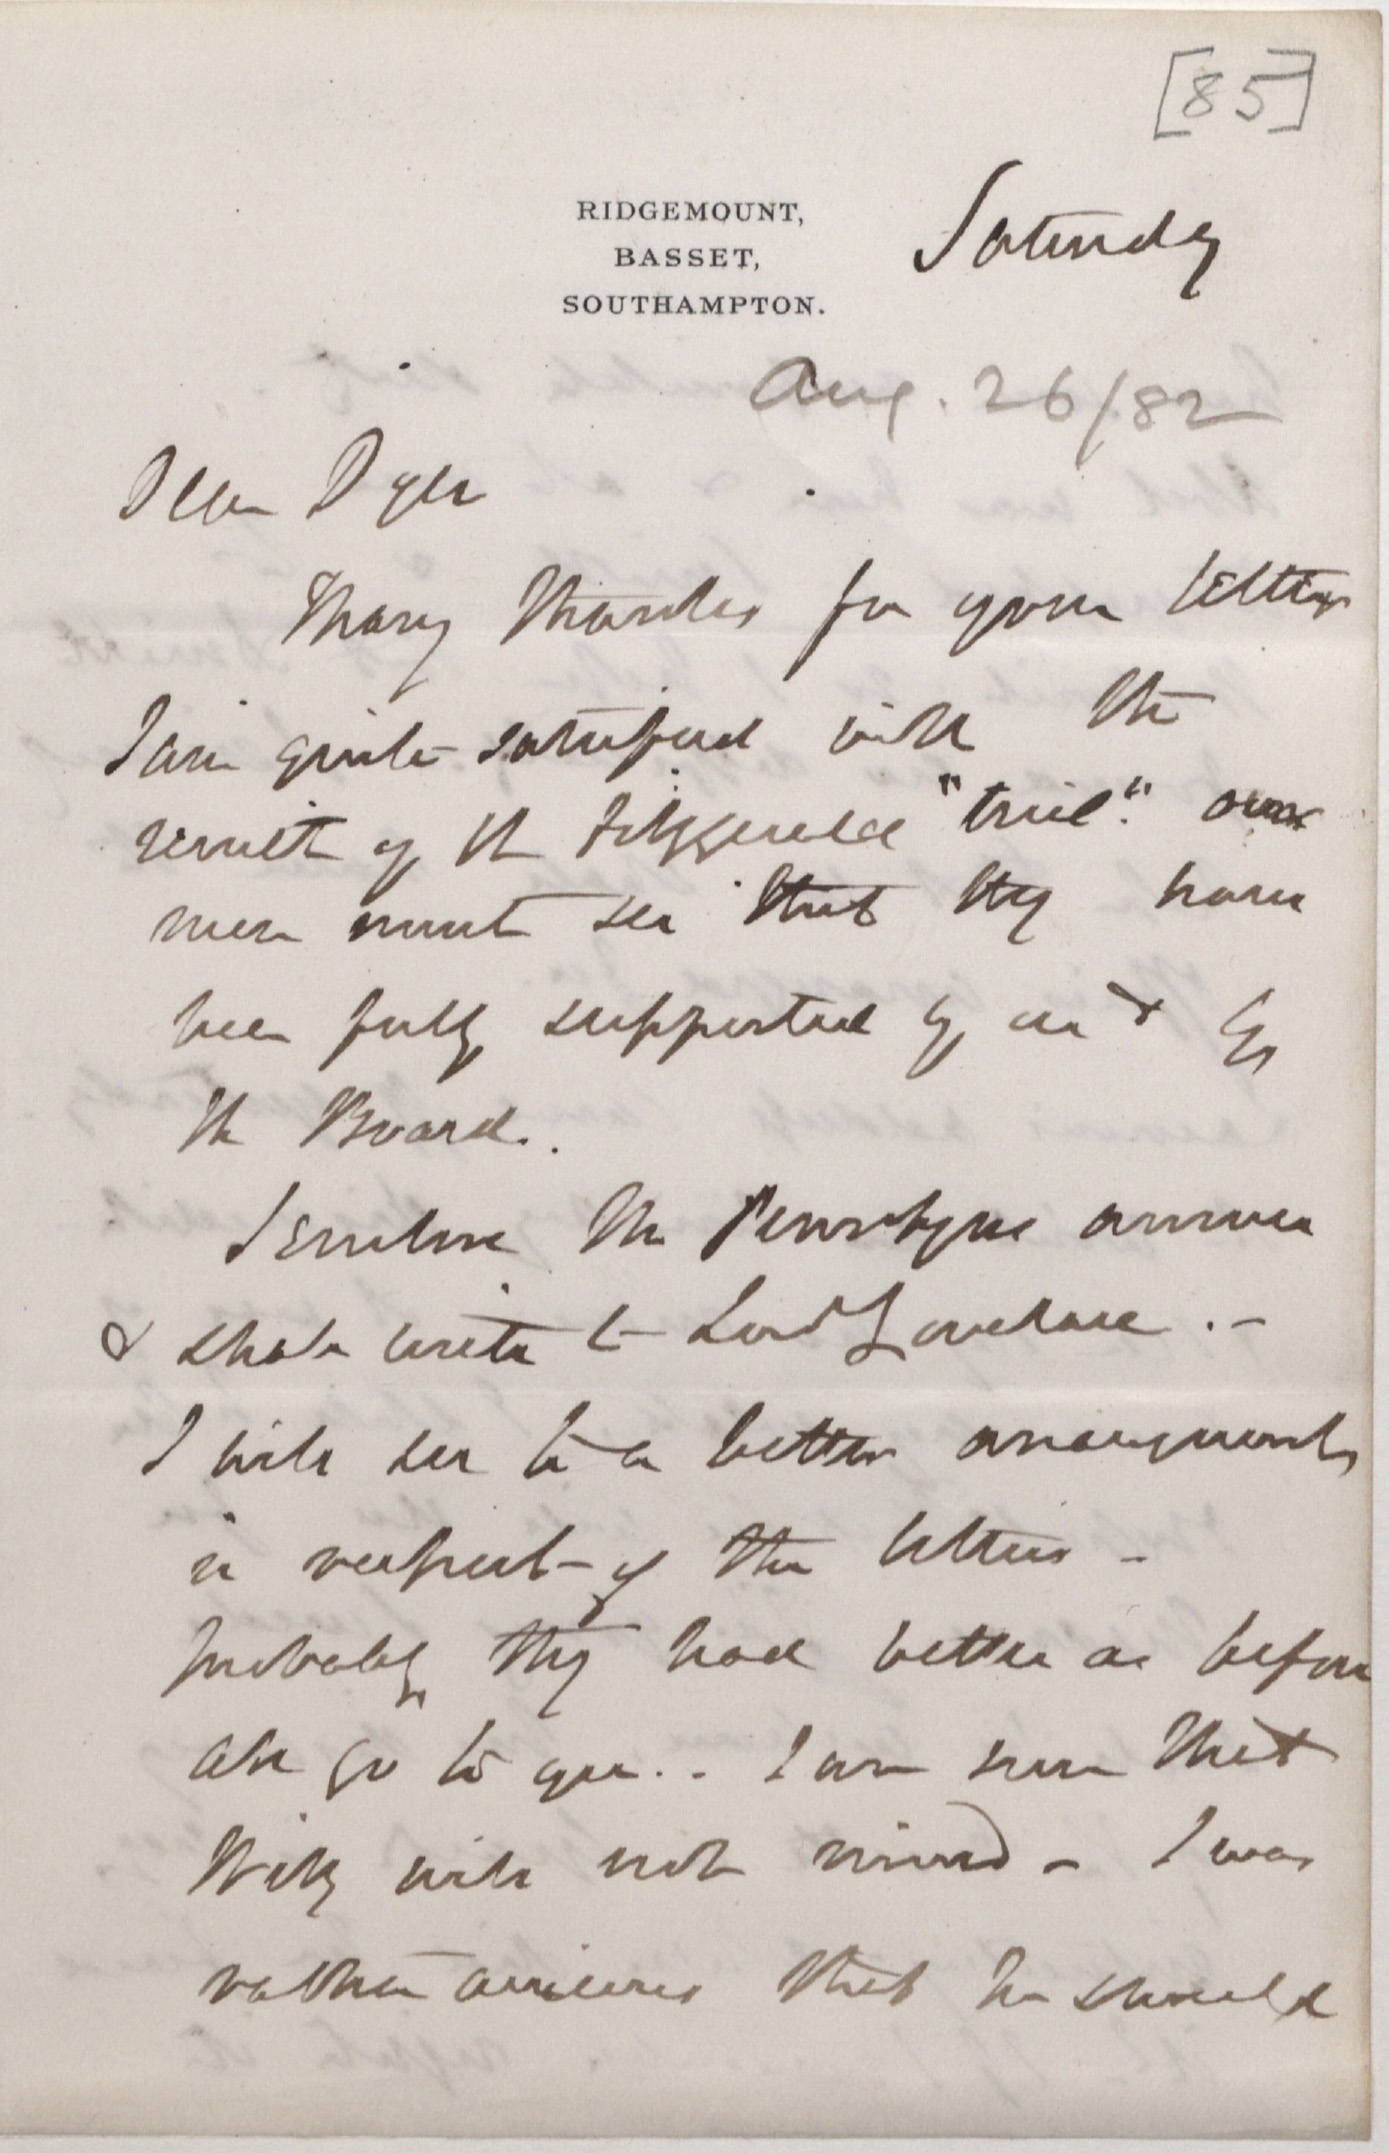 [85]
RIDGEMOUNT,
BASSET,
SOUTHAMPTON.
Saturday
Aug. 26/82
Dear Dyer
Many thanks for your letters
I am quite satisfied with the
result of the Fitzgerald "trial". our
men must see that they have
been fully supported by us & by
the Board.
I enclose the answer
& shall write to Lord Lovelace. -
I will see to a better arrangements
in respect of the letters -
probably they had better as before
all go to you. . I am sure that
will not mind - I was
rather anxious that he should